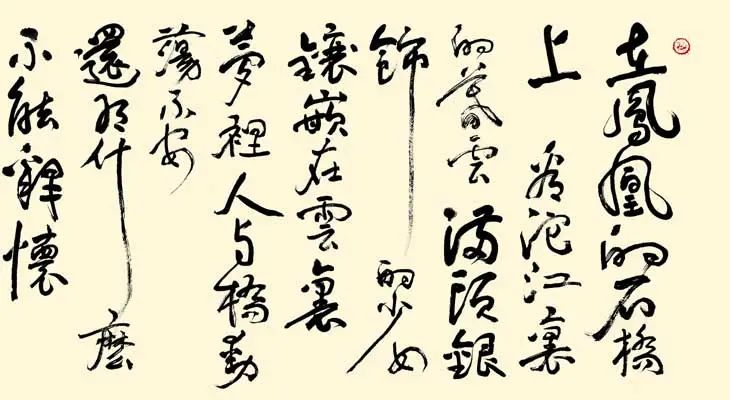 在鳳凰的石橋
上 看沱江裏
的暮雲 滿頭銀
飾 的少女
鑲嵌在雲裏
夢裡 人与橋動
蕩不安
還有什 麼
不能釋懷